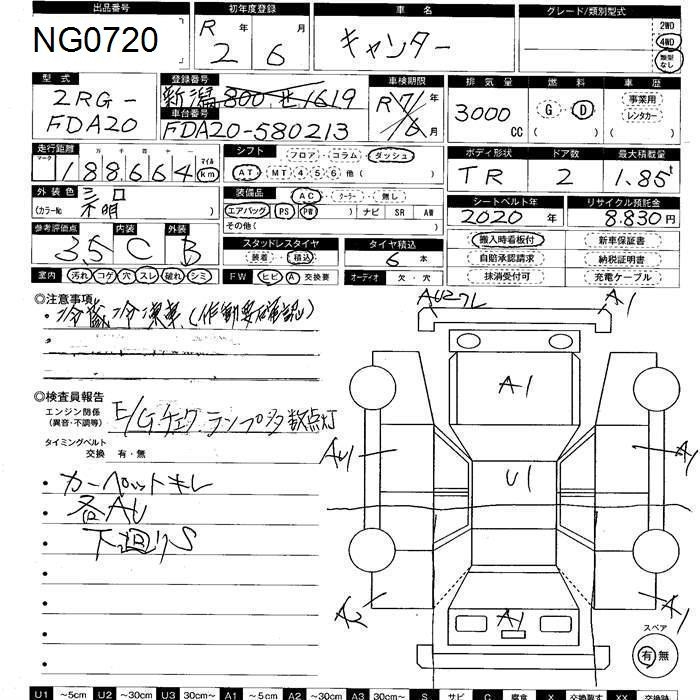 出品番号 初年度登録 車名 グレード/類別型式
NG0720 R 2 年 6 月 キャンター 2WD
4WD
類別なし
型式 登録番号 車検期限 排気量 燃料 車歴
2RG-FDA20 新潟 800 せ 1619 R 7/6 年 月 3000 CC G D 事業用
レンタカー
車台番号
FDA20-580213
走行距離 シフト フロア・コラム・ダッシュ ボディ形状 ドア数 最大積載量
マーク 十万 万 千 百 十 一 マイル
188,664 km AT・MT 4 5 6 他 ( ) TR 2 1.85t
外装色 装備品 AC・クーラー・無し シートベルト年 リサイクル預託金
(カラーNo. 不明 ) エアバッグ PS PW ) ナビ SR AW 2020 年 8.830 円
その他 ( )
参考評価点 内装 外装 スタッドレスタイヤ タイヤ積込 搬入時看板付 新車保証書
3.5 C B 装着・積込 6 本 自賠承認請求 納税証明書
室内 汚れ コゲ 穴 スレ 破れ シミ FW ヒビ A 交換要 オーディオ 欠・穴 抹消受付可 充電ケーブル
◎注意事項
・冷蔵冷凍車(作動要確認)
◎検査員報告
エンジン関係
(異音・不調等) E/Gチェックランプ多数点灯
タイミングベルト
交換 有・無
・カーペットキレ
・各AU
・下廻りS
AU2 A1
A1
AU A1
U1
A2 A2
A1
スペア
有 無
U1 ~5cm U2 ~30cm U3 30cm~ A1 ~5cm A2 ~30cm A3 30cm~ S サビ C 腐食 X 交換要す XX 交換跡